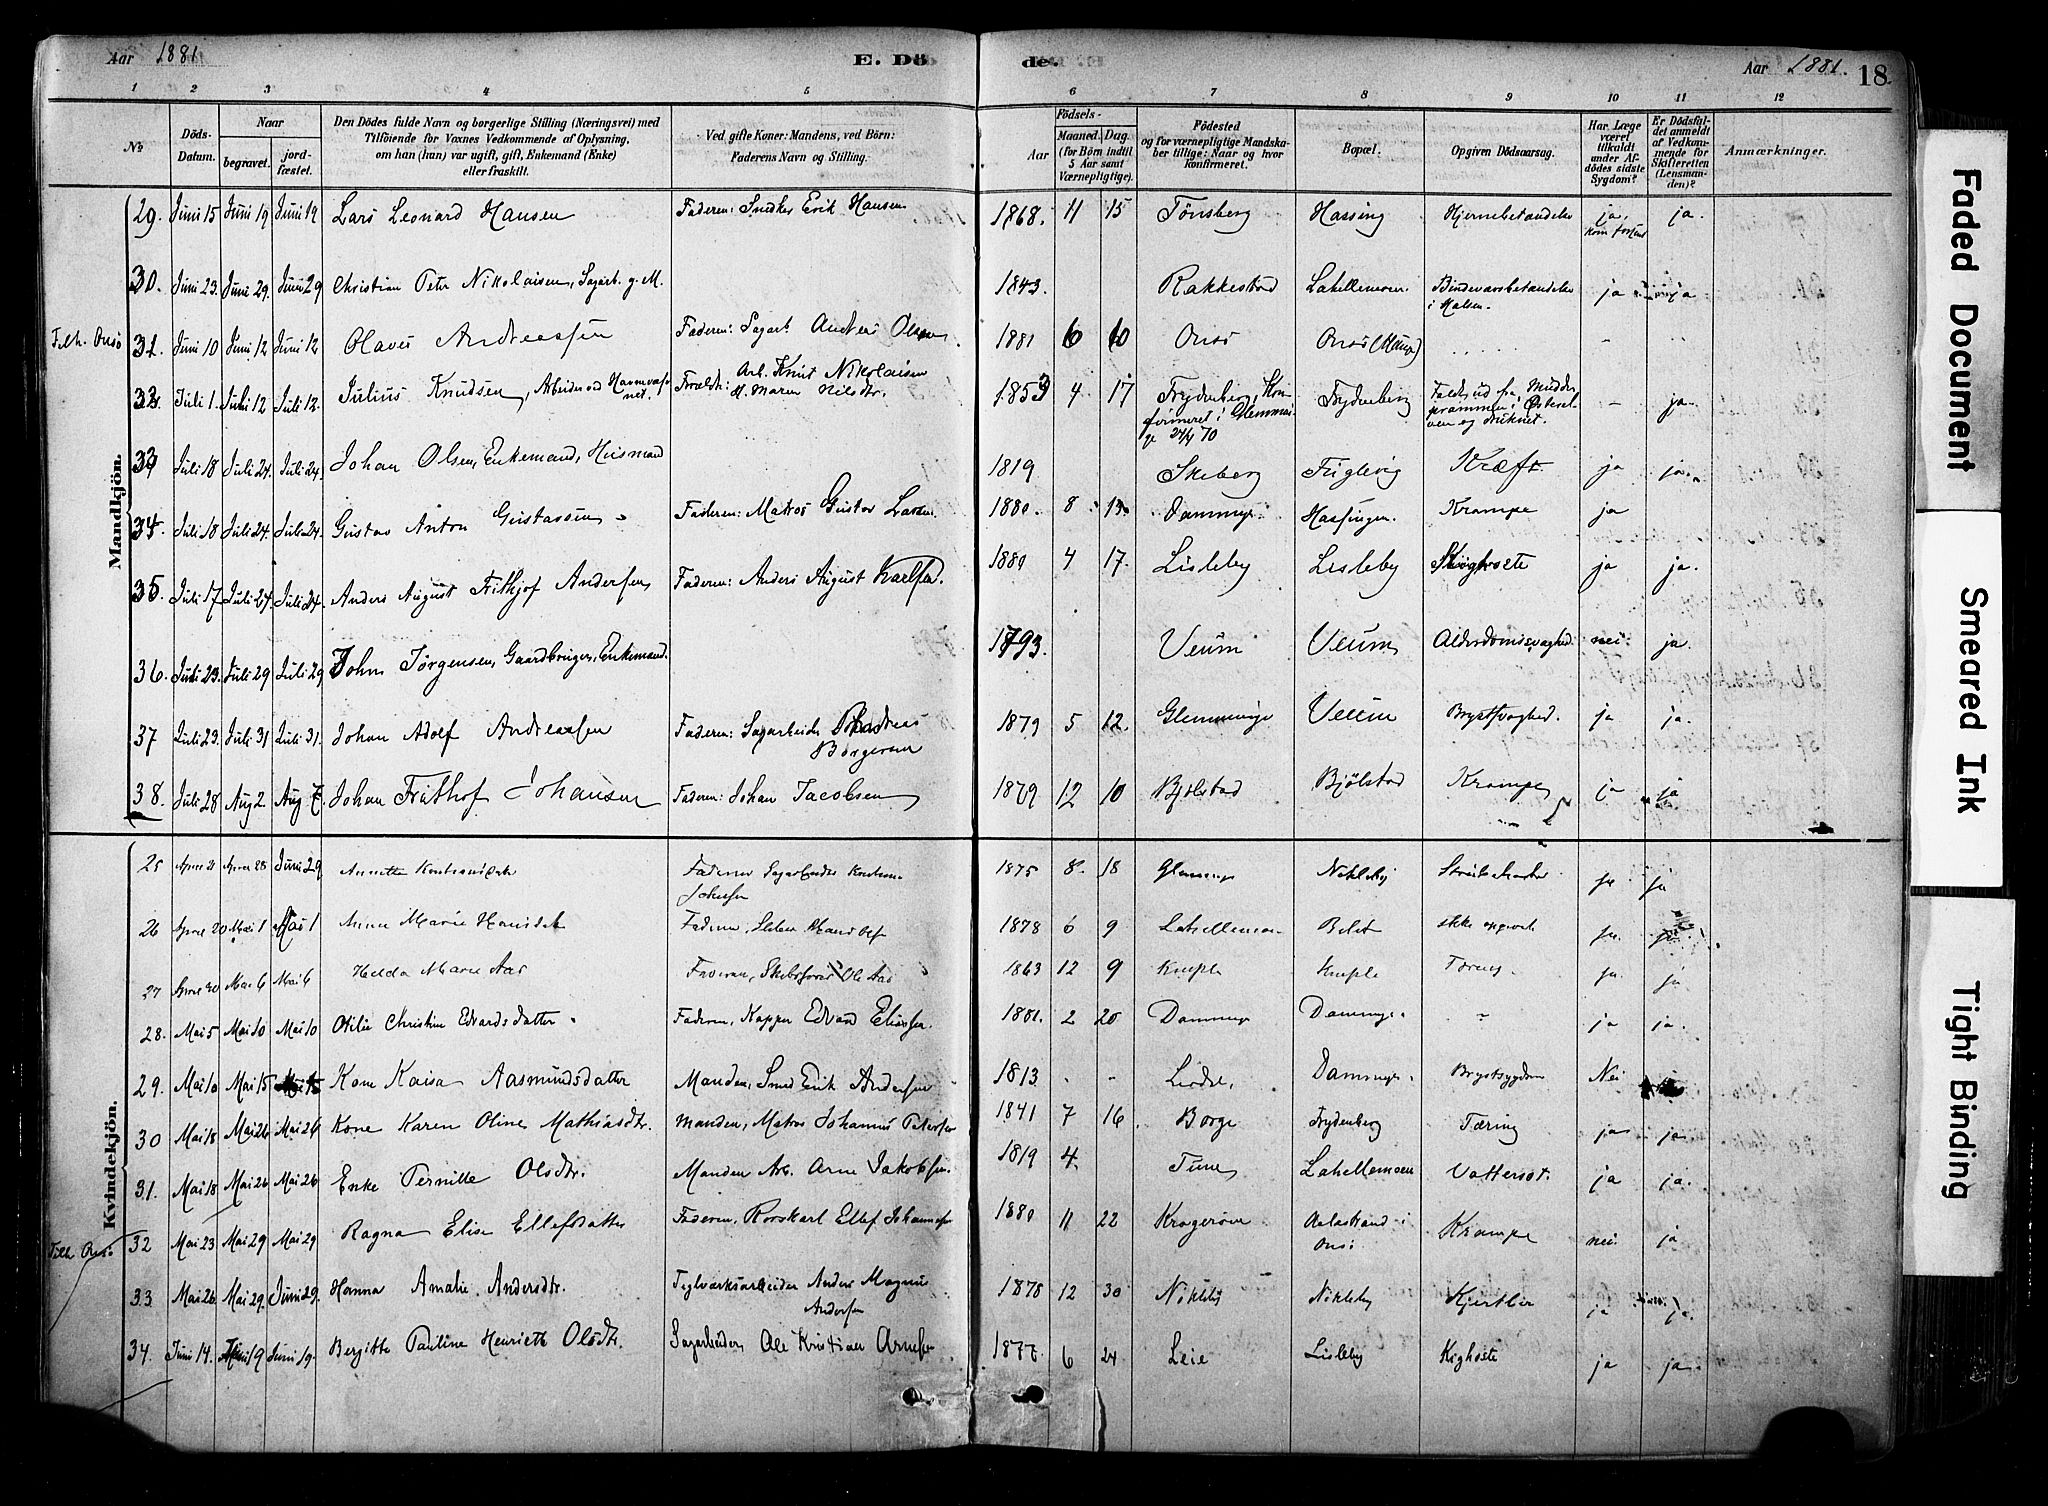 Aar 1881. E. Dö
de. Aar 1881. 18
1 2 3 4 5 6 7 8 9 10 11 12
No Döds-Datum. Naar begravet. jordfæstet. Den Dödes fulde Navn og borgerlige Stilling (Næringsvei) med Tilföiende for Voxnes Vedkommende af Oplysning, om han (hun) var ugift, gift, Enkemand (Enke) eller fraskilt. Ved gifte Koner: Mandens, ved Börn: Faderens Navn og Stilling. Aar Födsels- Maaned. Dag. (for Börn indtil 5 Aar samt Værnepligtige). Födested og for værnepligtige Mandskaber tillige: Naar og hvor konfirmeret. Bopæl. Opgiven Dödsaarsag. Har Læge været tilkaldt under Afdödes sidste Sygdom? Er Dödsfaldet anmeldt af Vedkommende for Skifteretten (Lensmanden)? Anmærkninger.
Mandkjön.
29. Juni 15 Juni 19 Juni 19 Lars Leonard Hansen Faderen: Snedker Erik Hansen 1868. 11 15 Tönsberg Hassing Hjernebetændelse ja. ja.
30. Juni 23. Juni 29. Juni 29 Christian Peter Nikolaisen, Sagarb. g. M. 1843. Rakkestad Lahellemoen. Bindevævsbetændelse i Halsen. ja ja
Tilh. Onsö 31. Juni 10 Juni 12 Juni 12 Olaves Andreassen Faderen: Sagarb. Anders Olsen 1881 6 10 Onsö Onsö
32. Juli 1. Juli 12 Juli 12. Julius Knudsen, Arbeider ved Havnevæsenet. Forældr: Arb. Knut Nikolaisen M. Maren Nilsdtr. 1853 4. 17 Trydenberg, Konfirmeret i Glemminge 24/4 70 Trydenberg Faldt ud fra Mudderprammen i Österelven og druknet. - ja.
33 Juli 18 Juli 24. Juli 24. Johan Olsen, Enkemand, Husmand 1819 Skeberg Fuglevig Kræft ja ja.
34. Juli 18 Juli 24. Juli 24. Gustav Anton Gustafsen Faderen: Matros Gustav Larsen. 1880. 8 13 Damminge Hassingen Krampe ja
35. Juli 17 Juli 24. Juli 24 Anders August Fithjof Andersen Faderen: Anders August Karlsen. 1880 4 17. Lisleby Lisleby Kighoste ja ja.
36. Juli 23. Juli 29 Juli 29 John Jörgensen, Gaardbruger, Enkemand. 1793. Veum Veum Alderdomssvaghed. nei. ja.
37 Juli 23. Juli 31 Juli 31. Johan Adolf Andreassen Faderen: Sagarbeider Andreas Borgersen 1879 5 12. Glemminge Veum Brystsvaghed. ja ja.
38. Juli 28 Aug 2 Aug 7. Johan Frithof Johansen Faderen: Johan Jacobsen 1879 12 10 Bjölstad Bjölstad Krampe ja ja
Kvindekjön.
25 April 21 April 28 Juni 29 Annette Faderen Sagarbeider 1875 8. 18 Glemminge Nikleby ja ja
26 April 20 Mai 1 Mai 1 Anne Marie Hansdtr Faderen, 1878 6 9 Lahellemoen ikke opgivet ja. ja.
27 April 30 Mai 6 Mai 6 Helda Marie Aas Faderen, Skibsförer Ole Aas 1863 12 9 Kniple Kniple Tæring ja. ja
28. Mai 5 Mai 10 Mai 10 Otilie Christine Edvardsdatter. Faderen, Kapper Edvard Eliassen. 1881. 2 20 Damminge Damminge. - ja ja.
29. Mai 10 Mai 15 Mai 15 Kone Kaisa Aasmundsdatter Manden, Smed Erik Andersen 1813. - - Damminge. Brystsygdom Nei
30 Mai 18 Mai 26 Mai 26 Kone Karen Oline Mathiasdtr. Manden, Matros Johannes Petersen 1841 7 16 Borge Trydenberg Tæring ja ja
31. Mai 18 Mai 26 Mai 26 Enke Pernille Olsdtr. Manden Arb. Arne Jakobsen. 1819 4. Tune Lahellemoen Vattersot. ja ja.
Tilh Onsö 32 Mai 23 Mai 29 Mai 29 Ragna Elise Ellefsdatter Faderen, Rorskarl Ellef Johannesen 1880 11 22 Kragerøen Aalestrand i Onsö Krampe nei. ja
33. Mai 26. Mai 29. Juni 29. Hanna Amalie Andersdtr. Teglværksarbeider Anders Magnus Andersen 1878 12 30 Nikleby Nikleby Kjertler ja ja.
34. Juni 14. Juni 19 Juni 19. Bergitte Pauline Henriette Olsdtr. Sagarbeider Ole Kristian Arnesen 1877. 6 24 Leie Lisleby Kighoste ja ja.
Faded Document
Smeared Ink
Tight Binding